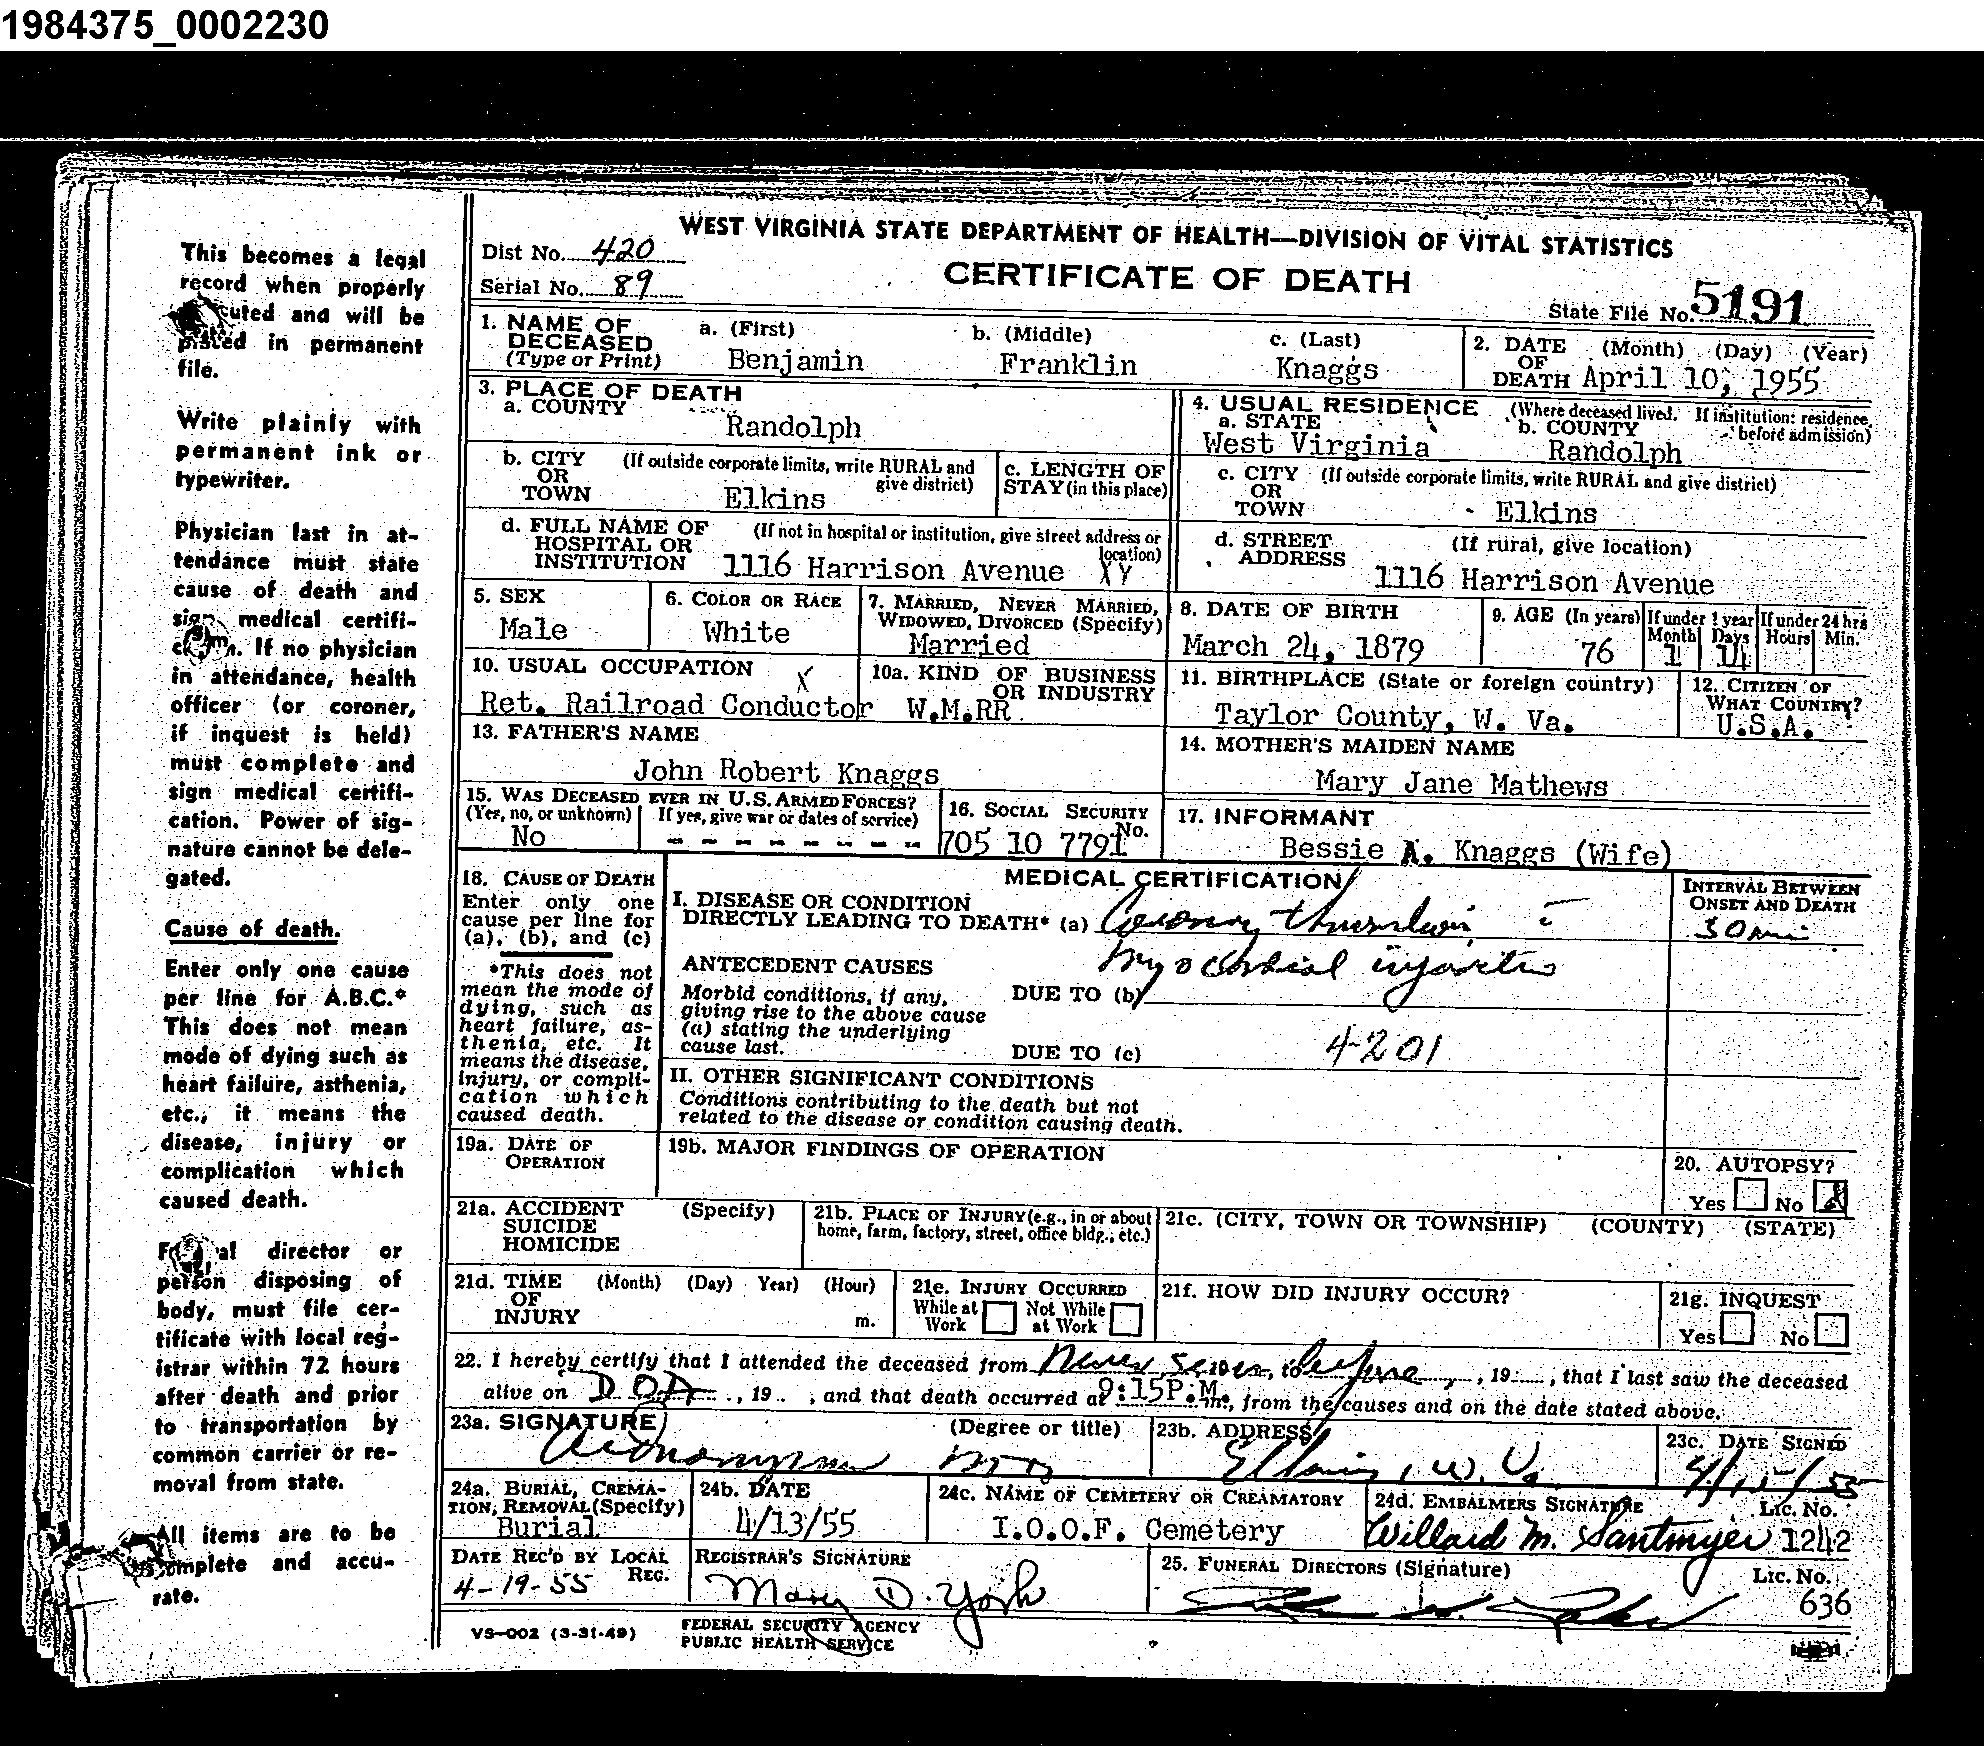 1984375_0002230
This becomes a legal
record when properly
cuted and will be
placed in permanent
file.
Write plainly with
permanent ink or
typewriter.
Physician last in at-
tendance must state
cause of death and
sign medical certifi-
If no physician
in attendance, health
officer (or coroner,
if inquest is held)
must complete and
sign medical certifi-
cation. Power of sig-
nature cannot be dele-
gated.
Cause of death.
Enter only one cause
per line for A.B.C.*
This does not mean
mode of dying such as
heart failure, asthenia,
etc., it means the
disease, injury or
complication which
caused death.
director or
person disposing of
body, must file cer-
tificate with local reg-
istrar within 72 hours
after death and prior
to transportation by
common carrier or re-
moval from state.
All items are to be
complete and accu-
rate.
WEST VIRGINIA STATE DEPARTMENT OF HEALTH—DIVISION OF VITAL STATISTICS
Dist No. 420
CERTIFICATE OF DEATH
Serial No. 89
State File No. 5191
1. NAME OF DECEASED (Type or Print) a. (First) Benjamin b. (Middle) Franklin c. (Last) Knaggs
2. DATE OF DEATH (Month) (Day) (Year) April 10, 1955
3. PLACE OF DEATH
a. COUNTY Randolph
4. USUAL RESIDENCE (Where deceased lived. If institution: residence before admission)
a. STATE West Virginia b. COUNTY Randolph
b. CITY OR TOWN (If outside corporate limits, write RURAL and give district) Elkins
c. LENGTH OF STAY (in this place)
c. CITY OR TOWN (If outside corporate limits, write RURAL and give district) Elkins
d. FULL NAME OF HOSPITAL OR INSTITUTION (If not in hospital or institution, give street address or location) 1116 Harrison Avenue XY
d. STREET ADDRESS (If rural, give location) 1116 Harrison Avenue
5. SEX Male
6. COLOR OR RACE White
7. MARRIED, NEVER MARRIED, WIDOWED, DIVORCED (Specify) Married
8. DATE OF BIRTH March 24, 1879
9. AGE (In years) 76 If under 1 year Month 1 Days 14 If under 24 hrs Hours Min.
10. USUAL OCCUPATION X Ret. Railroad Conductor
10a. KIND OF BUSINESS OR INDUSTRY W.M.RR
11. BIRTHPLACE (State or foreign country) Taylor County, W. Va.
12. CITIZEN OF WHAT COUNTRY? U.S.A.
13. FATHER'S NAME John Robert Knaggs
14. MOTHER'S MAIDEN NAME Mary Jane Mathews
15. WAS DECEASED EVER IN U.S. ARMED FORCES? (Yes, no, or unknown) No (If yes, give war or dates of service) - - - - - - - -
16. SOCIAL SECURITY No. 705 10 7791
17. INFORMANT Bessie A. Knaggs (Wife)
18. CAUSE OF DEATH
Enter only one
cause per line for
(a), (b), and (c)
*This does not
mean the mode of
dying, such as
heart failure, as-
thenia, etc. It
means the disease,
injury, or compli-
cation which
caused death.
MEDICAL CERTIFICATION
INTERVAL BETWEEN ONSET AND DEATH
I. DISEASE OR CONDITION
DIRECTLY LEADING TO DEATH* (a) Coronary 30 min
ANTECEDENT CAUSES myocardial
Morbid conditions, if any, DUE TO (b)
giving rise to the above cause
(a) stating the underlying
cause last. DUE TO (c) 4201
II. OTHER SIGNIFICANT CONDITIONS
Conditions contributing to the death but not
related to the disease or condition causing death.
19a. DATE OF OPERATION
19b. MAJOR FINDINGS OF OPERATION
20. AUTOPSY?
Yes No
21a. ACCIDENT SUICIDE HOMICIDE (Specify)
21b. PLACE OF INJURY (e.g., in or about home, farm, factory, street, office bldg., etc.)
21c. (CITY, TOWN OR TOWNSHIP) (COUNTY) (STATE)
21d. TIME OF INJURY (Month) (Day) Year) (Hour) m.
21e. INJURY OCCURRED While at Work Not While at Work
21f. HOW DID INJURY OCCUR?
21g. INQUEST Yes No
22. I hereby certify that I attended the deceased from Never seen before, 19....., that I last saw the deceased
alive on DOA, 19.., and that death occurred at 9:15P.M. m., from the causes and on the date stated above.
23a. SIGNATURE (Degree or title)
23b. ADDRESS Elkins, W. Va.
23c. DATE SIGNED 4/15/55
24a. BURIAL, CREMATION, REMOVAL (Specify) Burial
24b. DATE 4/13/55
24c. NAME OF CEMETERY OR CREAMATORY I.O.O.F. Cemetery
24d. EMBALMERS SIGNATURE Willard M. Santmyer Lic. No. 1242
DATE REC'D BY LOCAL REG. 4-19-55
REGISTRAR'S SIGNATURE Mary D. York
25. FUNERAL DIRECTORS (Signature) Lic. No. 636
VS-002 (3-31-49)
FEDERAL SECURITY AGENCY
PUBLIC HEALTH SERVICE